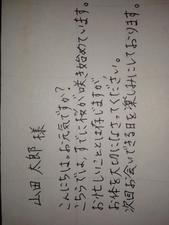 山田 太郎 様
こんにちは。お元気ですか?
こちらでは、すでに桜が咲き始めています。
お忙しいこととは存じますが、
お体を大切になさってください。
次回お会いできる日を楽しみにしております。